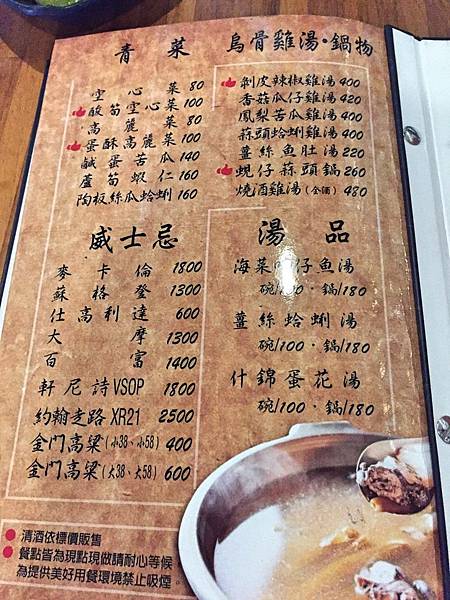 青菜
空心菜 80
酸筍空心菜 100
高麗菜 80
蛋酥高麗菜 100
鹹蛋苦瓜 140
蘆筍蝦仁 160
陶板絲瓜蛤蜊 160
烏骨雞湯·鍋物
剝皮辣椒雞湯 400
香菇瓜仔雞湯 420
鳳梨苦瓜雞湯 400
蒜頭蛤蜊雞湯 400
薑絲魚肚湯 220
蜆仔蒜頭鍋 260
燒酒雞湯(全酒) 480
威士忌
麥卡倫 1800
蘇格登 1300
仕高利達 600
大摩 1300
百富 1400
軒尼詩VSOP 1800
約翰走路XR21 2500
金門高粱(小38、小58) 400
金門高粱(大38、大58) 600
湯品
海菜 仔魚湯
碗/100·鍋/180
薑絲蛤蜊湯
碗/100·鍋/180
什錦蛋花湯
碗/100·鍋/180
清酒依標價販售
餐點皆為現點現做請耐心等候
為提供美好用餐環境禁止吸煙。